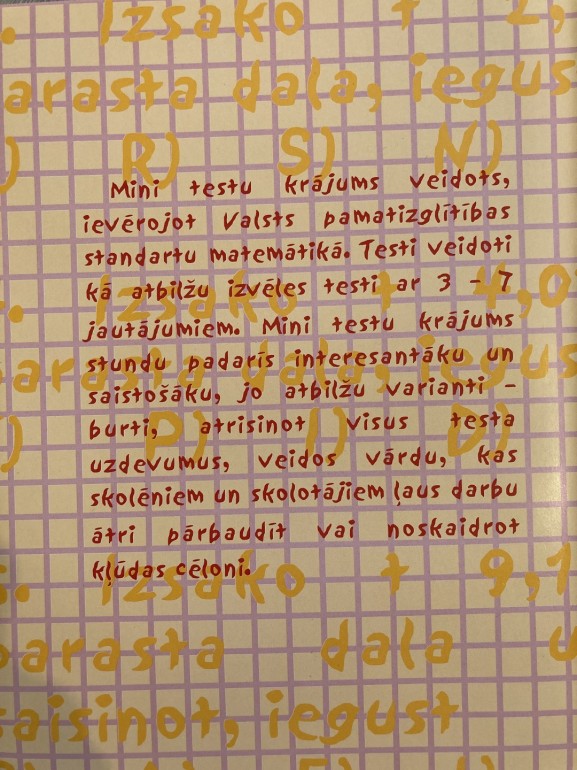 . Izsako t 2,
arasta daļa, iegus
) R) S) N)
Mini testu krājums veidots,
ievērojot Valsts pamatizglītības
standartu matemātikā. Testi veidoti
kā atbilžu izvēles testi ar 3 - 7
jautājumiem. Mini testu krājums
stundu padarīs interesantāku un
saistošāku, jo atbilžu varianti -
burti, atrisinot visus testa
uzdevumus, veidos vārdu, kas
skolēniem un skolotājiem ļaus darbu
ātri pārbaudīt vai noskaidrot
kļūdas cēloni.
. Izsako t 9,1
parasta daļa u
saisinot, iegust